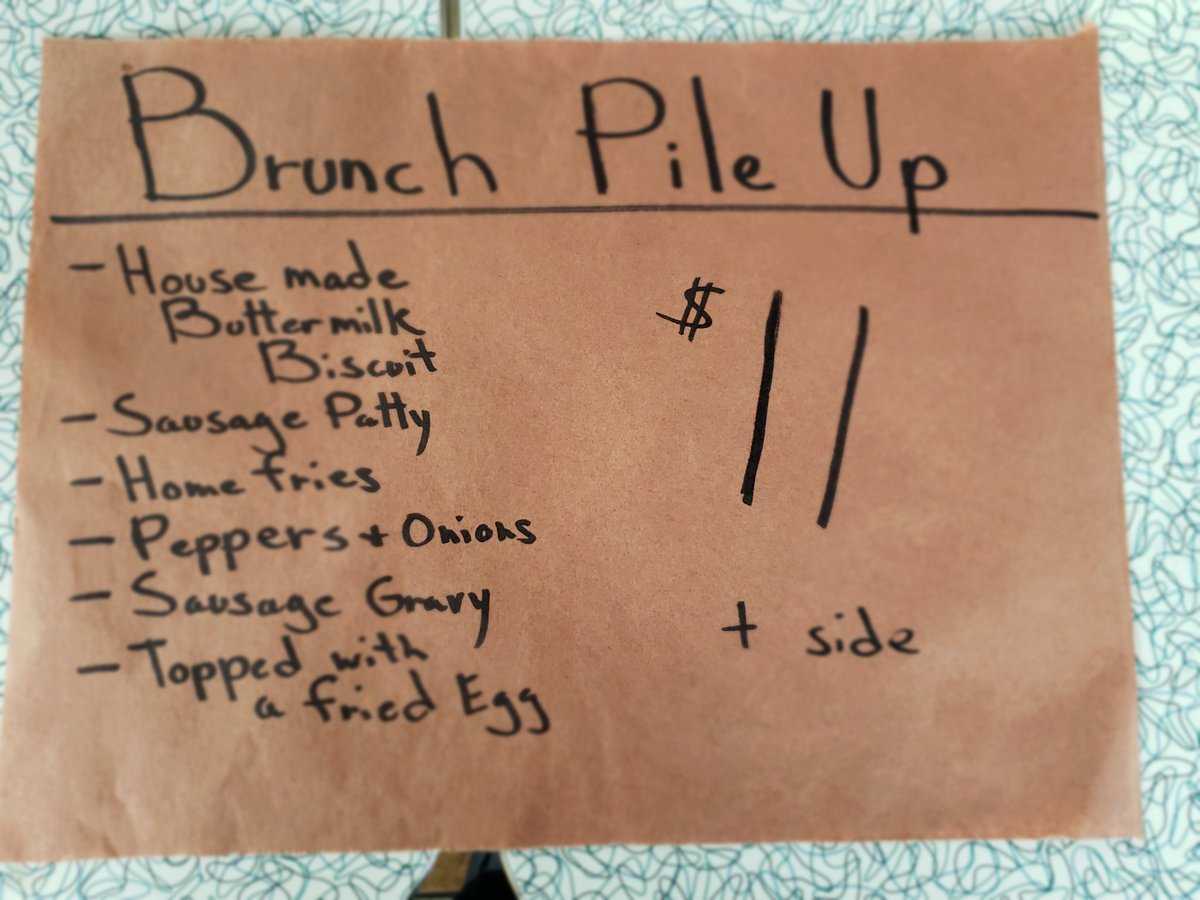 Brunch Pile Up
- House made
Buttermilk
Biscuit
- Sausage Patty
- Home fries
- Peppers + Onions
- Sausage Gravy
- Topped with
a fried Egg
$ 11
+ side